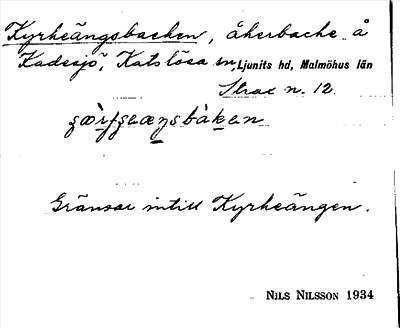 Kyrkeängsbacken, åkerbacke å
Kadesjö, Katslösa sn, Ljunits hd, Malmöhus län
Strac n. 12.
Gränsar intill Kyrkeängen.
NILS NILSSON 1934